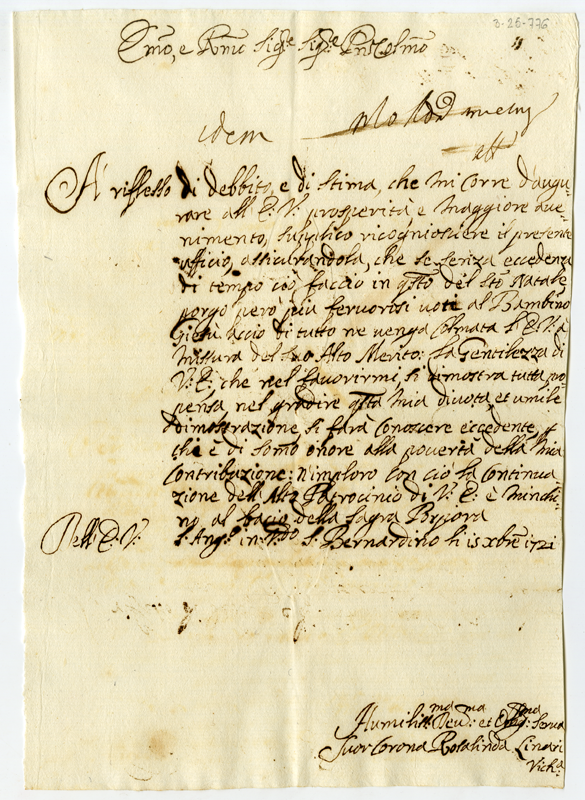 3-26-776
Emo, e Rmo Sigre Sigre Prone Colmo
idem
A' riflesso di debbito, e di stima, che mi corre d'augu-
rare all'E: V: prosperità e maggiore aue-
nimento, suplico ricognioscere il presente
ufficio, assicurandola, che se senza eccedenza
di tempo ciò faccio in qsto del Sto Natale,
porgo però più feruorosi uoti al Bambino
Giesù acciò di tutto ne uenga colmata l'E: V: a
missura del suo Alto Merito: La Gentilezza di
V: E: che nel fauorirmi, si dimostra tutta pro-
pensa, nel gradire qsta mia diuota, et umile
dimostrazione si farà conoscere eccedente, il
che è di somo onore alla pouertà della mia
Contribazione: N'imploro con ciò la continua
zione dell'Alto Patrocinio di V: E: e m'inchi-
no al bacio della Sagra Porpora
Dell'E: V: S. Angelo in Vdo S. Bernardino li 15 xbre 1721
Humilisma Deuma et Obligma Serua
Suor Corona Rosalinda Linari
Vicha